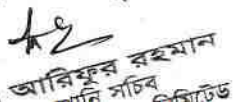 আরিফুর রহমান
সচিব
লিমিটেড